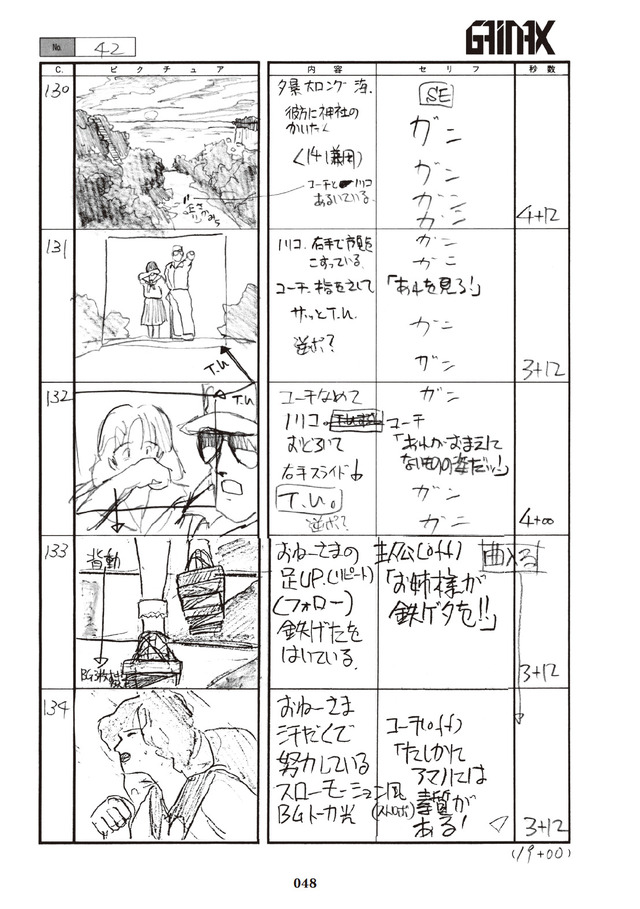 GAINAX
No. 42
C.
ピクチュア
内容
セリフ
秒数
130
夕景 大ロング 海.
彼方に神社の
かいだん
(141兼用)
コーチと ノリコ
あるいている.
SE
ガーン
ガーン
ガーン
ガーン
4+12
131
ノリコ. 右手で
こすっている.
コーチ. 指をさして
サッと T.U.
逆ポ?
T.U
ガーン
ガーン
「あれを見ろ!」
ガーン
ガーン
3+12
132
T.U
コーチなめて
ノリコ.
おどろいて
右手スライド↓
T.U.
逆ポ?
ガーン
コーチ
「あれがおまえに
ないものの姿だッ!」
ガーン
ガーン
4+00
133
背動
おねーさまの
足UP.(リピート)
(フォロー)
鉄げたを
はいている.
主人公(off)
曲入る
「お姉様が
鉄ゲタを!!」
3+12
134
おねーさま
汗だくで
努力している
スローモーション風
BGトーカ光
(ストロボ)
コーチ(off)
「たしかに
アマノには
素質が
ある!
3+12
(19+00)
048